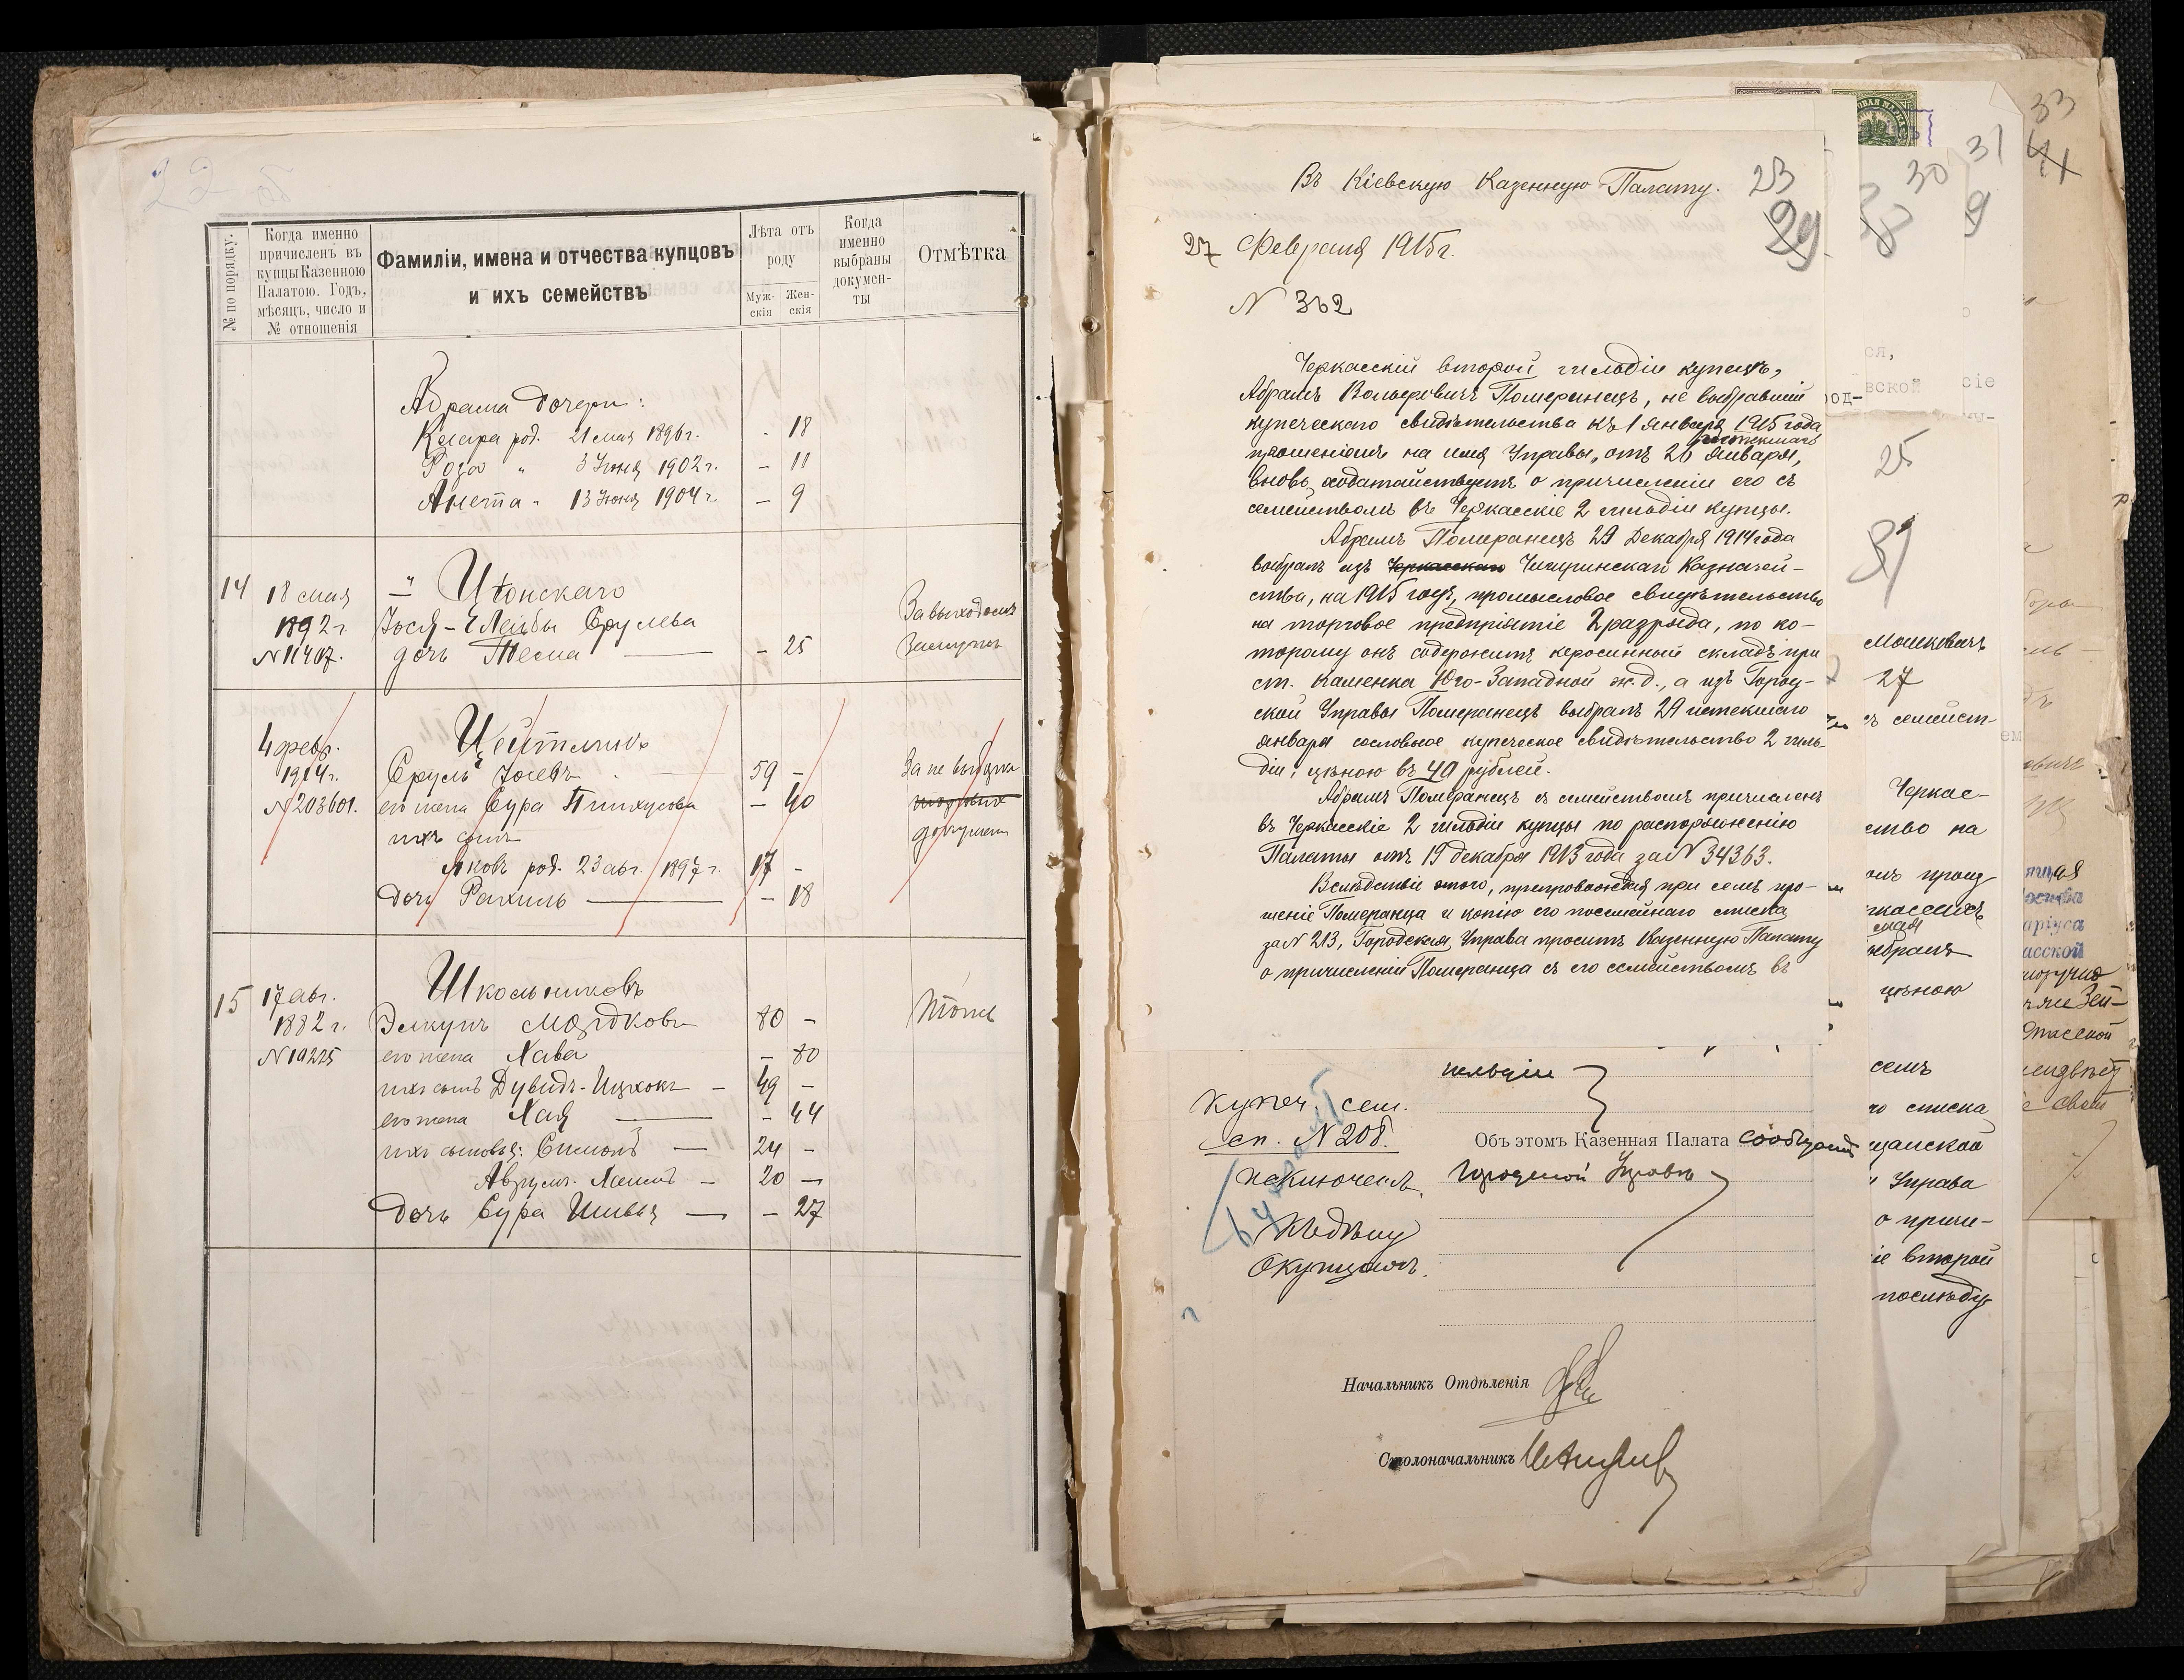 22 об
№ по порядку.
Когда именно
причисленъ въ
купцы Казенною
Палатою. Годъ,
мѣсяцъ, число и
№ отношенія
Фамиліи, имена и отчества купцовъ
и ихъ семействъ
Лѣта отъ
роду
Муж-
скія
Жен-
скія
Когда
именно
выбраны
докумен-
ты
Отмѣтка
Абрама дочери:
Клара род. 21 мая 1896 г. - 18
Роза " 3 Іюня 1902 г. - 11
Анета " 13 Іюня 1904 г. - 9
14 18 мая
1892 г.
N 11407.
Іося-Лейбы Срулева
дочь Песма - 25
За выходомъ
замужъ
4 февр.
1914 г.
N 203601.
Цейтлинъ
Сруль Іосевъ 59 -
его жена Сура Пинхусова - 40
ихъ сынъ
Яковъ род. 23 авг. 1897 г. 17 -
дочь Рахиль - 18
За не выборкою
15 17 авг.
1882 г.
N 19225
Школьниковъ
Элкунъ Мордковъ 80 -
его жена Хава - 80
ихъ сынъ Дувидъ-Ицхокъ - 49 -
его жена Хая - 44
ихъ сыновья: Симонъ - 24 -
Аврумъ-Хаимъ - 20 -
дочь Сура Шивья - 27
Тоже
Въ Кіевскую Казенную Палату.
23
29
27 Февраля 1915 г.
N 362
Черкасскій второй гильдіи купецъ,
Абрамъ Вольфовичъ Померанецъ, не выбравшій
купеческаго свидѣтельства къ 1 января 1915 года
истекшаго
прошеніемъ на имя Управы, отъ 20 января,
вновь ходатайствуетъ о причисленіи его съ
семействомъ въ Черкасскіе 2 гильдіи купцы.
Абрамъ Померанецъ 29 Декабря 1914 года
выбралъ изъ Черкасскаго Чигиринскаго Казначей-
ства, на 1915 годъ, промысловое свидѣтельство
на торговое предпріятіе 2 разряда, по ко-
торому онъ содержитъ керосинный складъ при
ст. Каменка Юго-Западной ж.д., а изъ Город-
ской Управы Померанецъ выбралъ 29 истекшаго
января сословное купеческое свидѣтельство 2 гиль-
діи, цѣною въ 40 рублей.
Абрамъ Померанецъ съ семействомъ причисленъ
въ Черкасскіе 2 гильдіи купцы по распоряженію
Палаты отъ 19 декабря 1913 года за N 34363.
Вслѣдствіе этого, препровождая при семъ про-
шеніе Померанца и копію его посемейнаго списка
за N 213, Городская Управа проситъ Казенную Палату
о причисленіи Померанца съ его семействомъ въ
гильдіи
Купеч. сем.
сп. N 208.
Объ этомъ Казенная Палата сообщаетъ
Городской Управѣ
исключенъ
Къ дѣлу
о купцахъ.
Начальникъ Отдѣленія
Столоначальникъ
30
31
9
33
41
25
Мошковичъ
27
ъ семейст-
Черкас-
ство на
выбралъ
цѣною
семъ
го списка
щанской
и Управа
о причи-
іе второй
послѣду-
ся,
вской
сіе
род-
асской